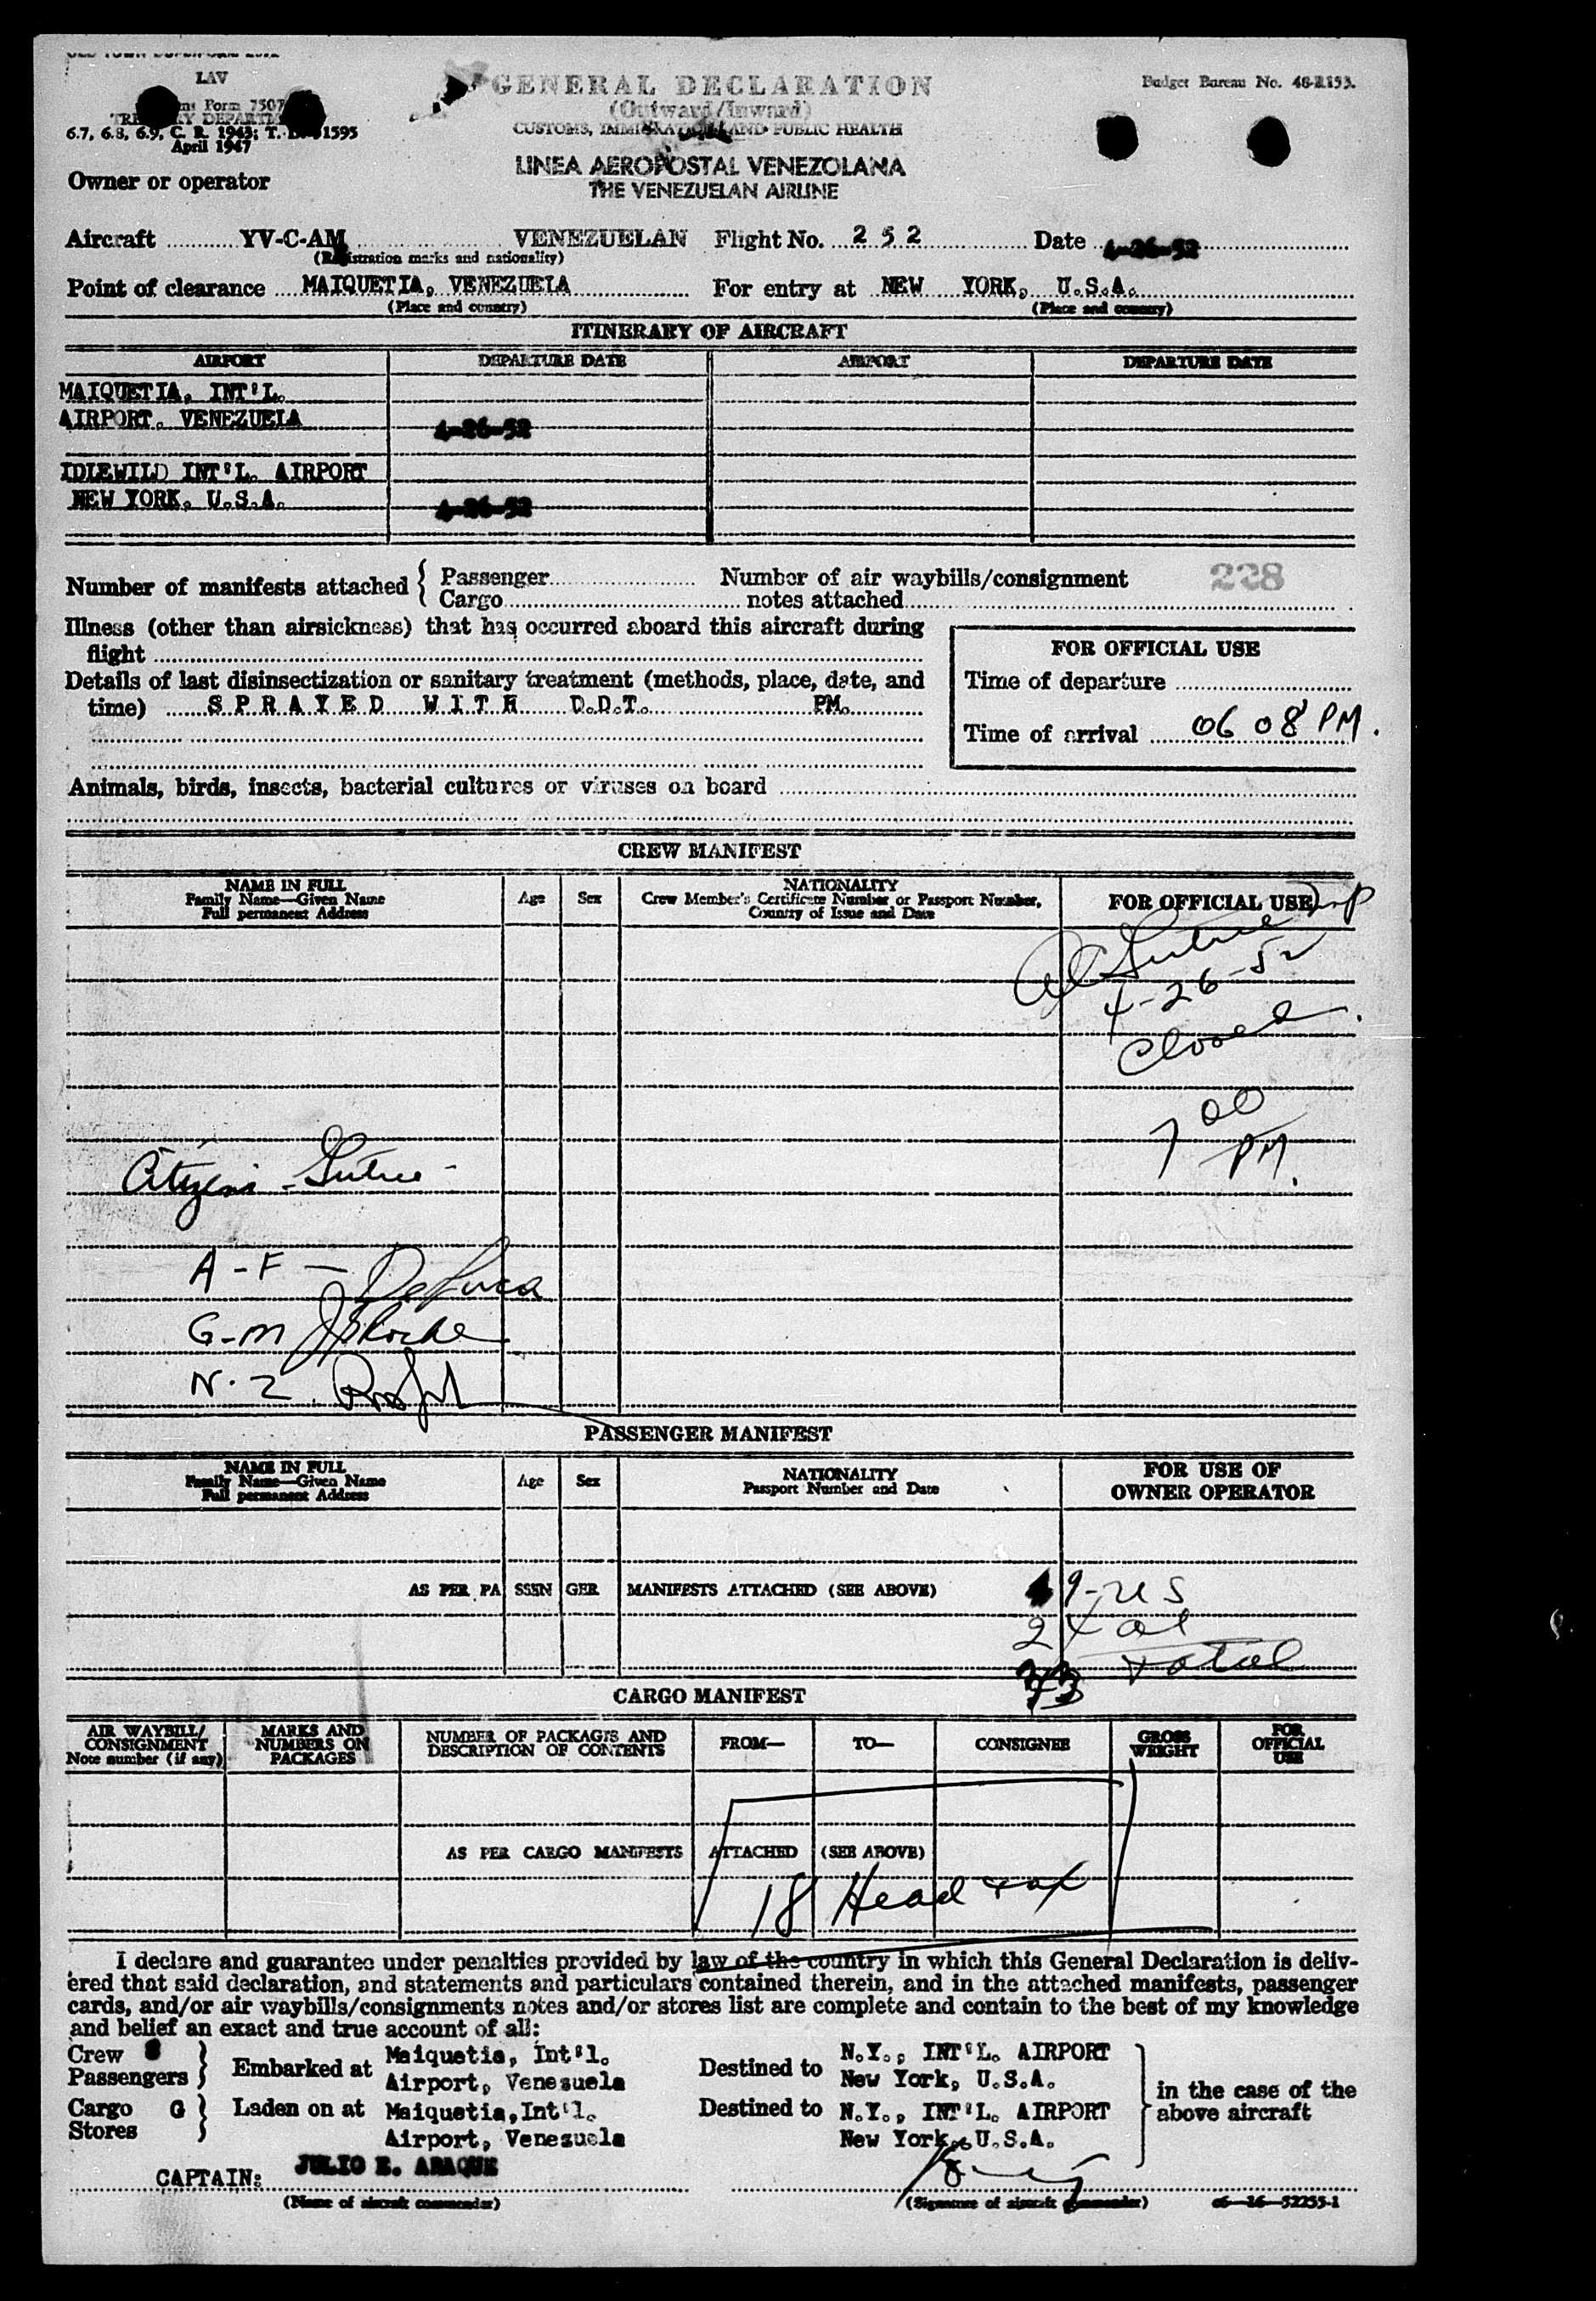 LAV
GENERAL DECLARATION
Budget Bureau No. 48-R193.
Form 7507
(Outward/Inward)
TREASURY DEPARTMENT
CUSTOMS, IMMIGRATION AND PUBLIC HEALTH
6.7, 6.8, 6.9, C. R. 1943; T. D. 51595
April 1947
LINEA AEROPOSTAL VENEZOLANA
THE VENEZUELAN AIRLINE
Owner or operator
Aircraft YV-C-AM VENEZUELAN Flight No. 252 Date 4-26-52
(Registration marks and nationality)
Point of clearance MAIQUETIA, VENEZUELA For entry at NEW YORK, U.S.A.
(Place and country) (Place and country)
ITINERARY OF AIRCRAFT
AIRPORT DEPARTURE DATE AIRPORT DEPARTURE DATE
MAIQUETIA, INT'L.
AIRPORT. VENEZUELA 4-26-52
IDLEWILD INT'L. AIRPORT
NEW YORK, U.S.A. 4-26-52
Number of manifests attached { Passenger Number of air waybills/consignment 228
Cargo notes attached
Illness (other than airsickness) that has occurred aboard this aircraft during
flight
FOR OFFICIAL USE
Details of last disinsectization or sanitary treatment (methods, place, date, and
time) SPRAYED WITH D.D.T. PM.
Time of departure
Time of arrival 06 08 PM.
Animals, birds, insects, bacterial cultures or viruses on board
CREW MANIFEST
NAME IN FULL Age Sex NATIONALITY FOR OFFICIAL USE
Family Name—Given Name Crew Member's Certificate Number or Passport Number,
Full permanent Address Country of Issue and Date
4-26-52
Closed
7 00
PM.
Citizens -
A-F - DeLuca
G-M
N-Z
PASSENGER MANIFEST
NAME IN FULL Age Sex NATIONALITY FOR USE OF
Family Name—Given Name Passport Number and Date OWNER OPERATOR
Full permanent Address
AS PER PASSENGER MANIFESTS ATTACHED (SEE ABOVE)
9-US
24 al
total
CARGO MANIFEST
AIR WAYBILL/ MARKS AND NUMBER OF PACKAGES AND FROM— TO— CONSIGNEE GROSS FOR
CONSIGNMENT NUMBERS ON DESCRIPTION OF CONTENTS WEIGHT OFFICIAL
Note number (if any) PACKAGES USE
AS PER CARGO MANIFESTS ATTACHED (SEE ABOVE)
18 Head tax
I declare and guarantee under penalties provided by law of the country in which this General Declaration is deliv-
ered that said declaration, and statements and particulars contained therein, and in the attached manifests, passenger
cards, and/or air waybills/consignments notes and/or stores list are complete and contain to the best of my knowledge
and belief an exact and true account of all:
Crew 8 Embarked at Maiquetia, Int'l. Destined to N.Y., INT'L. AIRPORT
Passengers Airport, Venezuela New York, U.S.A. in the case of the
Cargo G Laden on at Maiquetia, Int'l. Destined to N.Y., INT'L. AIRPORT above aircraft
Stores Airport, Venezuela New York, U.S.A.
CAPTAIN: JULIO E. ARAQUE
(Name of aircraft commander) (Signature of aircraft commander) 16—52255-1